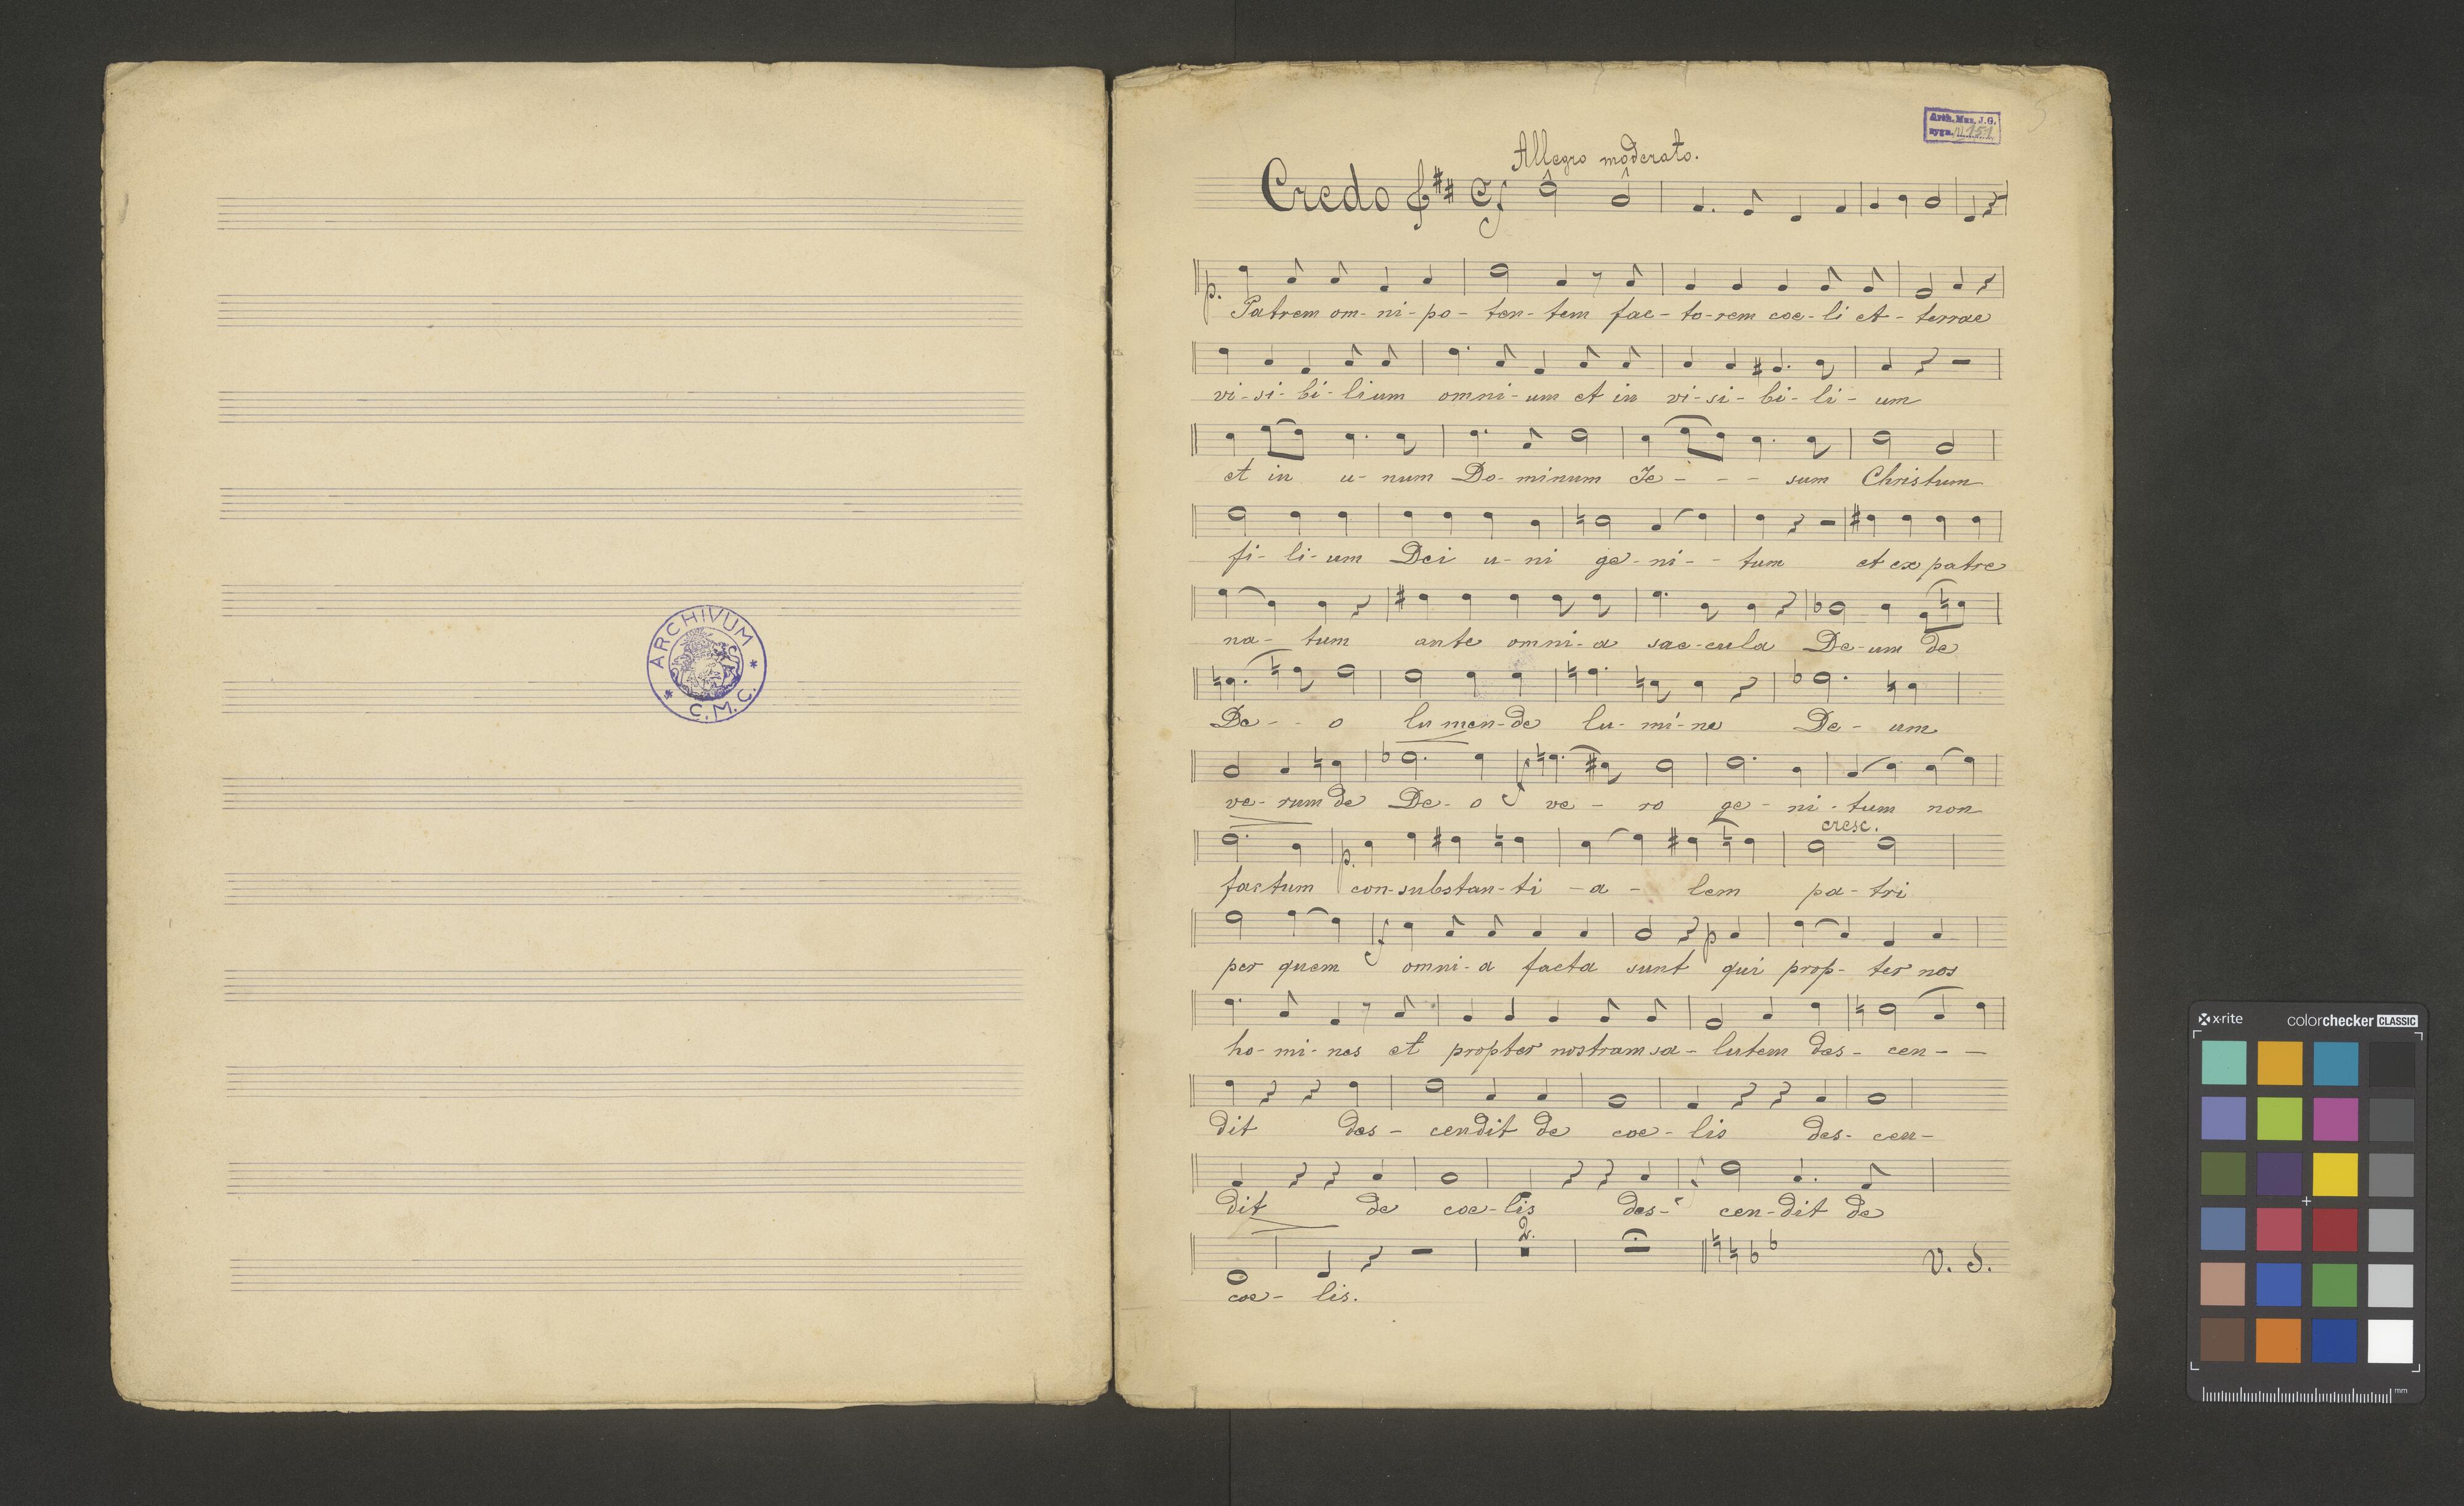 ARCHIVUM
* C. M. C. *
Arch. Mus. J. G.
sygn. III/151
Allegro moderato.
Credo f
p. Patrem om-ni-po-ten-tem fac-to-rem coe-li et-terrae
vi-si-bi-lium omni-um et in vi-si-bi-li-um
et in u-num Do-minum Je - - - sum Christum
fi-li-um Dei u-ni ge-ni-- tum et ex patre
na-tum ante omni-a sae-cula De-um de
De - - o lumen-de lu-mi-ne De-um
ve-rum de De-o f ve - ro ge-ni-tum non
cresc.
factum p. con-substan-ti -a- lem pa-tri
f p
per quem omni-a facta sunt qui prop-ter nos
ho-mi-nes et propter nostram sa-lutem des-cen--
dit des-cendit de coe-lis des-cen-
dit de coe-lis des- cen-dit de
2.
V. S.
coe-lis.
x-rite colorchecker CLASSIC
mm